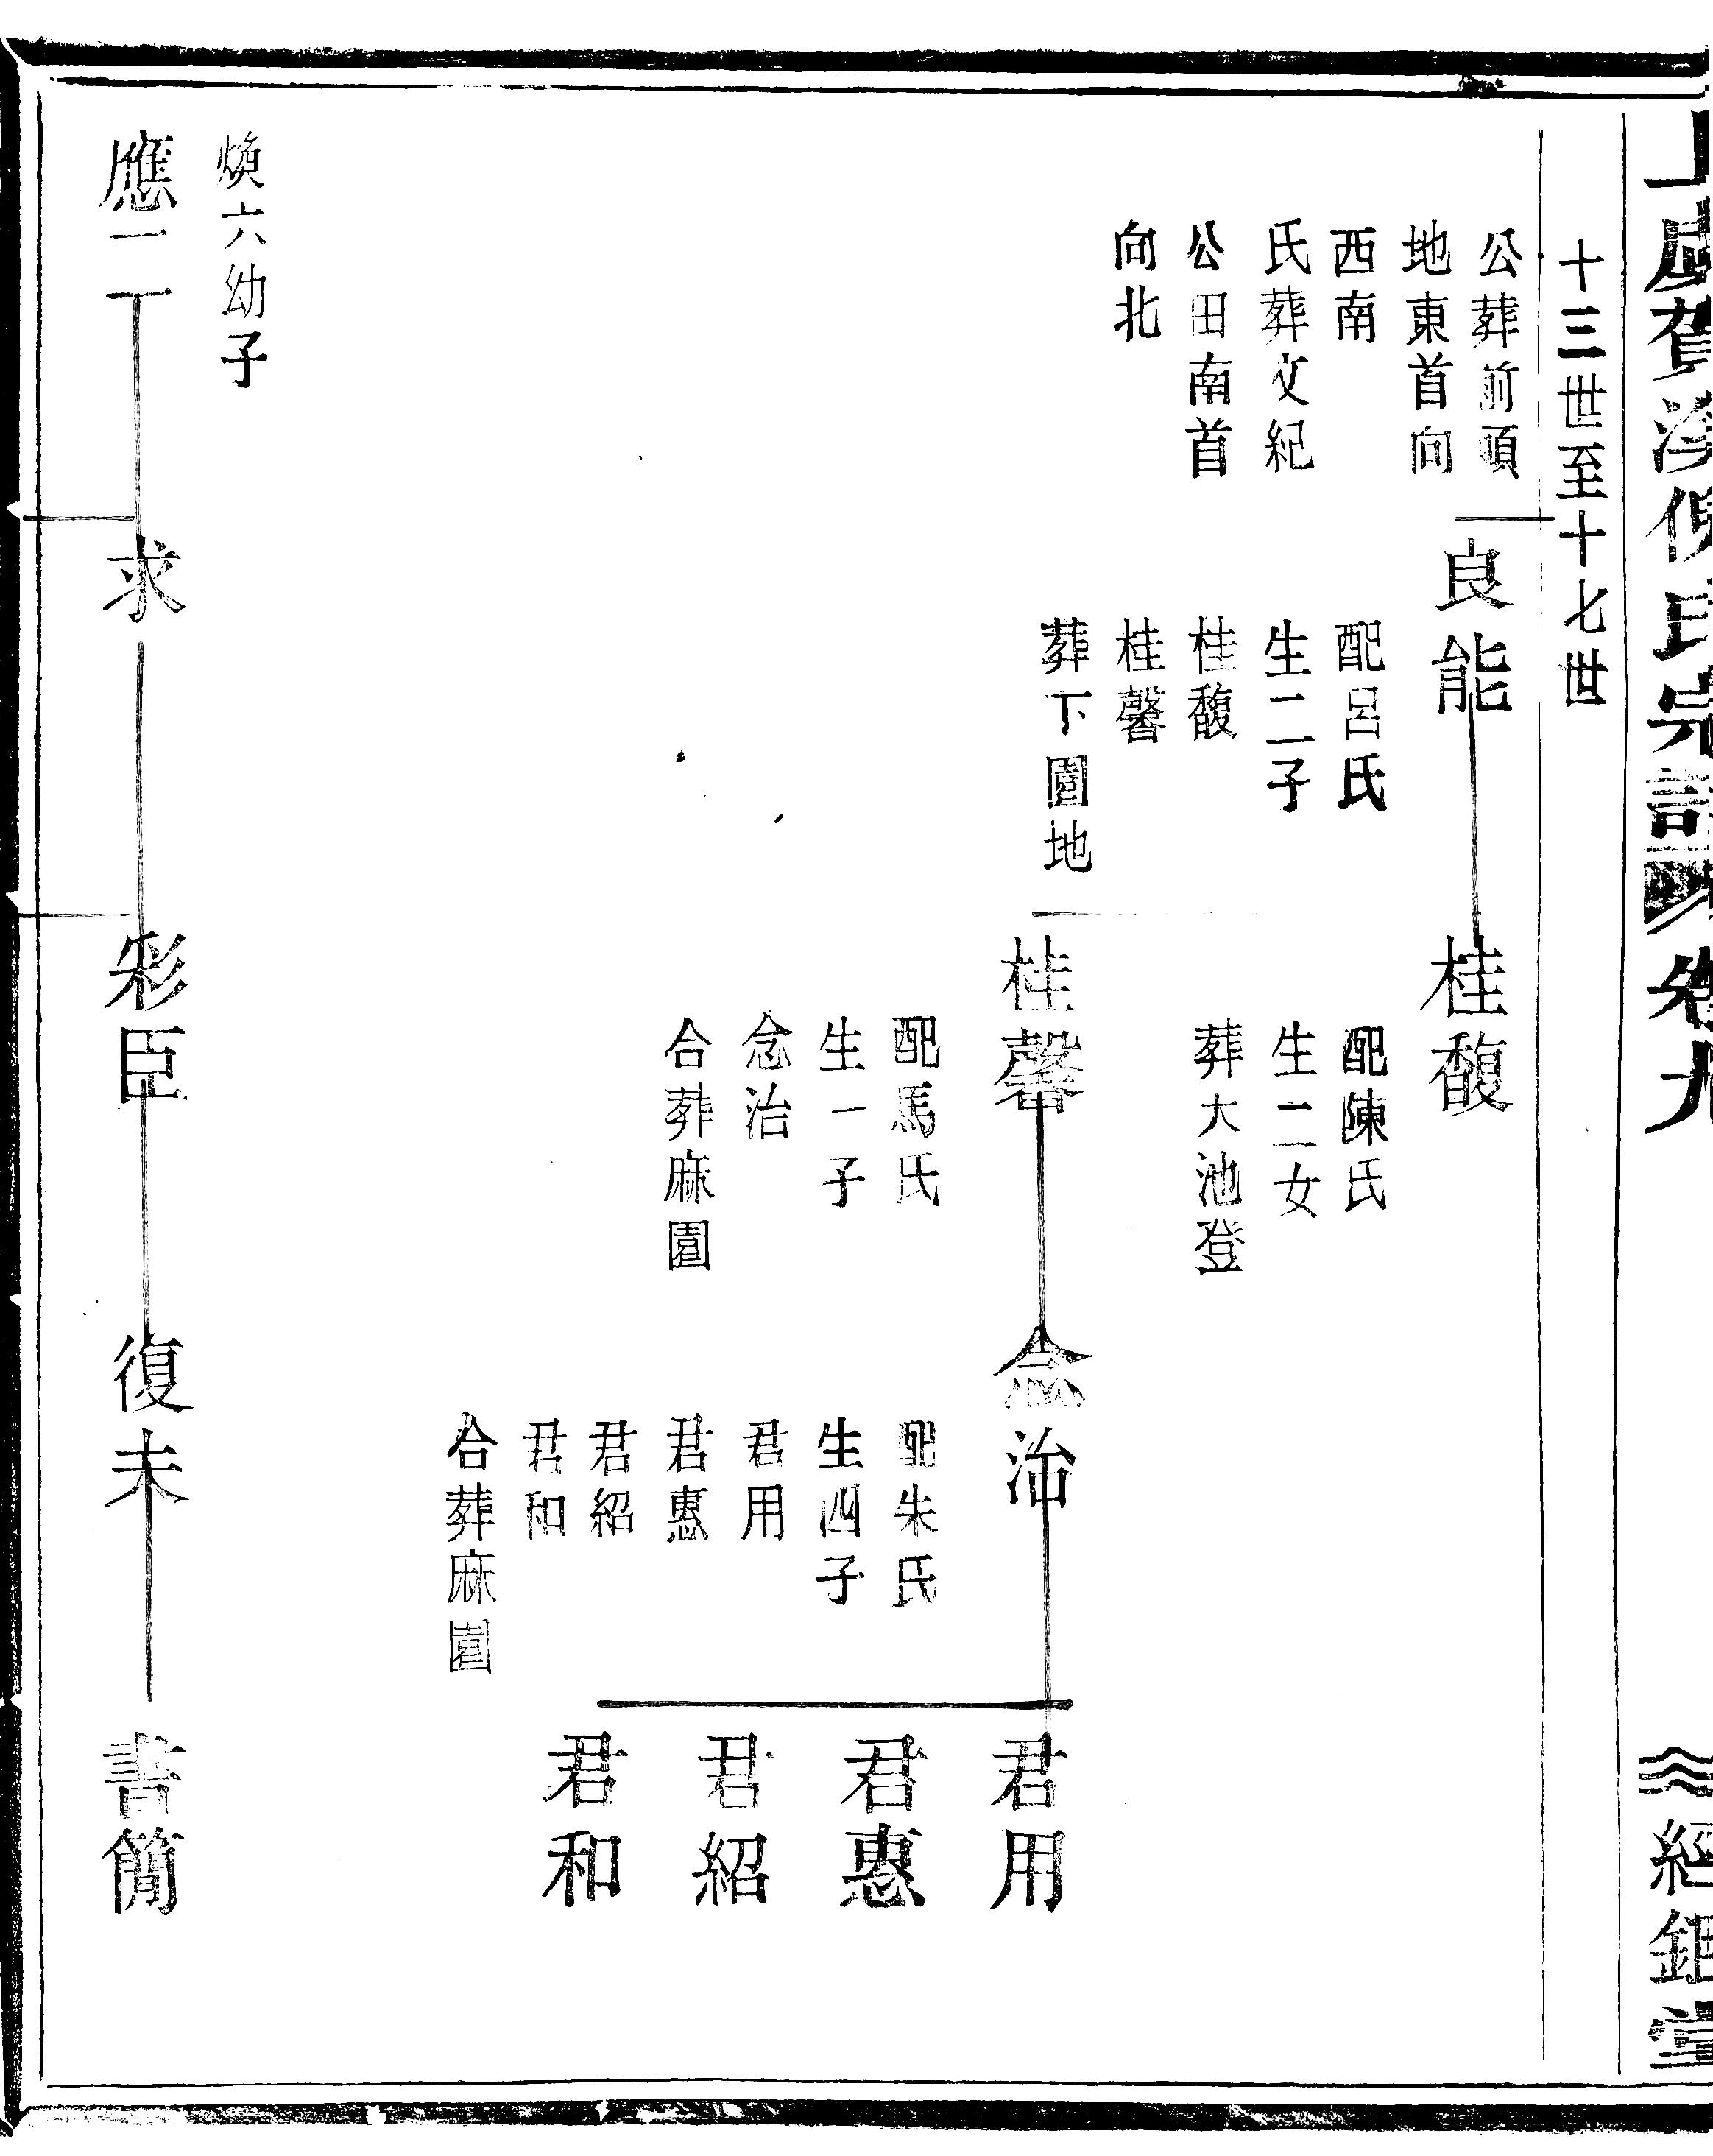 賀溪倪氏宗譜
卷九
經鉏堂
十三世至十七世
公葬前頭
地東首向
西南
氏葬文紀
公田南首
向北
良能
配呂氏
生二子
桂馥
桂馨
葬下園地
桂馥
配陳氏
生二女
葬大池登
桂馨
配馬氏
生一子
念治
合葬麻園
念治
配朱氏
生四子
君用
君惠
君紹
君和
合葬麻園
君用
君惠
君紹
君和
煥六幼子
應二
求
彩臣
復未
書簡